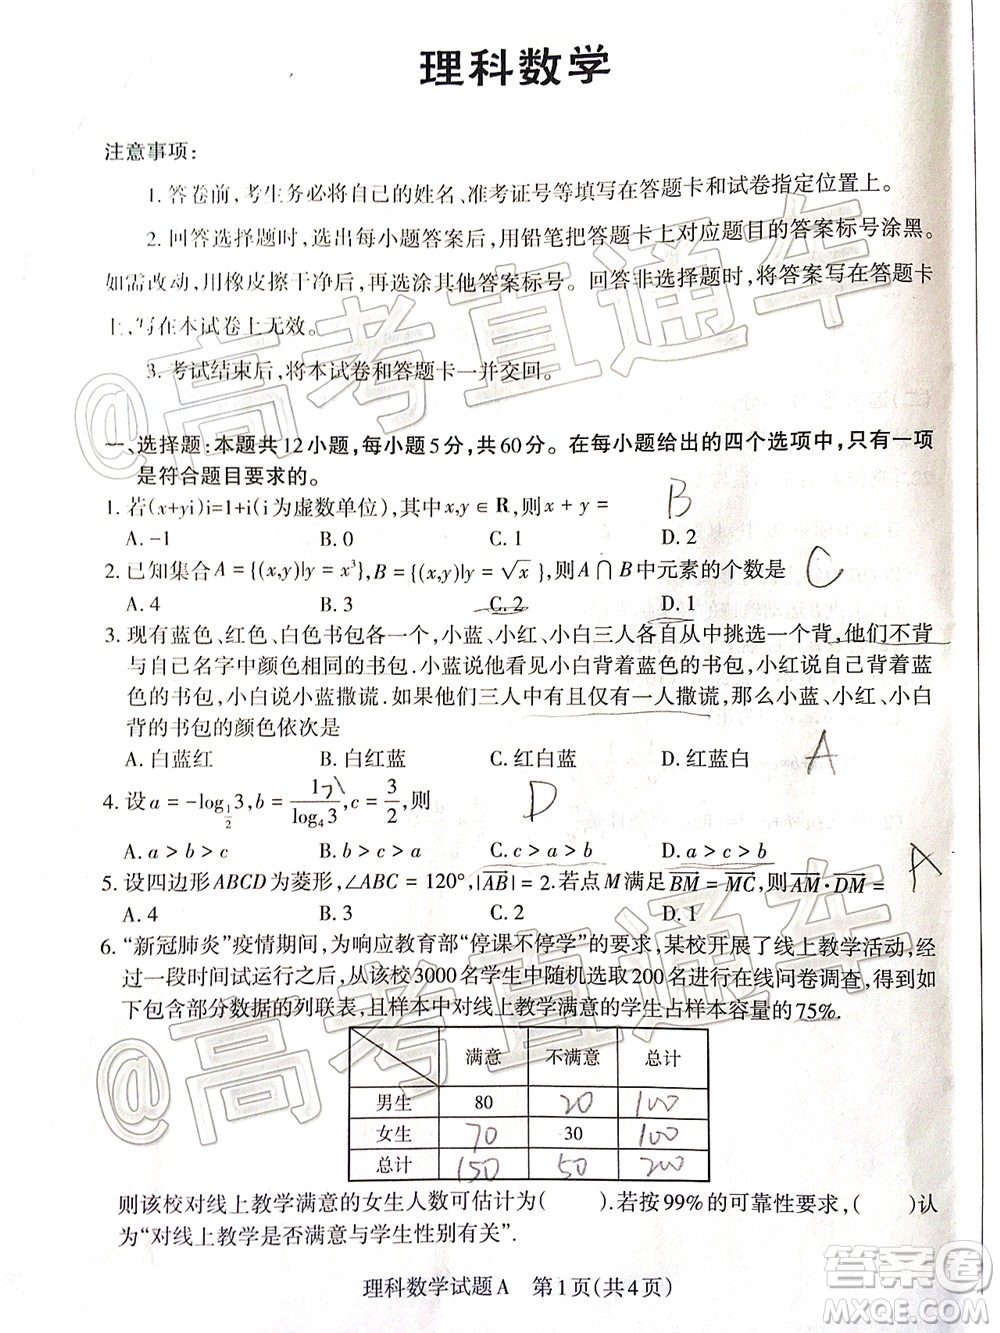 理科数学
注意事项:
1. 答卷前,考生务必将自己的姓名、准考证号等填写在答题卡和试卷指定位置上。
2. 回答选择题时,选出每小题答案后,用铅笔把答题卡上对应题目的答案标号涂黑。
如需改动,用橡皮擦干净后,再选涂其他答案标号。回答非选择题时,将答案写在答题卡
上,写在本试卷上无效。
3. 考试结束后,将本试卷和答题卡一并交回。
一、选择题:本题共12小题,每小题5分,共60分。在每小题给出的四个选项中,只有一项
是符合题目要求的。
1. 若(x+yi)i=1+i(i为虚数单位),其中x,y∈R,则x+y= B
A. -1 B. 0 C. 1 D. 2
2. 已知集合A={(x,y)|y=x³},B={(x,y)|y=√x},则A∩B中元素的个数是 C
A. 4 B. 3 C. 2 D. 1
3. 现有蓝色、红色、白色书包各一个,小蓝、小红、小白三人各自从中挑选一个背,他们不背
与自己名字中颜色相同的书包.小蓝说他背着白色的书包,小红说自己背着蓝
色的书包,小白说小蓝撒谎.如果他们三人中有且仅有一人撒谎,那么小蓝、小红、小白
背的书包的颜色依次是
A. 白蓝红 B. 白红蓝 C. 红白蓝 D. 红蓝白 A
4. 设a=-log_{1/2}3,b=1/log₄3,c=3/2,则 D
A. a>b>c B. b>c>a C. c>a>b D. a>c>b
5. 设四边形ABCD为菱形,∠ABC=120°,|AB|=2.若点M满足BM=MC,则AM·DM= A
A. 4 B. 3 C. 2 D. 1
6. “新冠肺炎”疫情期间,为响应教育部“停课不停学”的要求,某校开展了线上教学活动,经
过一段时间试运行之后,从该校3000名学生中随机选取200名进行在线问卷调查,得到如
下包含部分数据的列联表,且样本中对线上教学满意的学生占样本容量的75%.
满意 不满意 总计
男生 80 20 100
女生 70 30 100
总计 150 50 200
则该校对线上教学满意的女生人数可估计为( ).若按99%的可靠性要求,( )认
为“对线上教学是否满意与学生性别有关”.
理科数学试题A 第1页(共4页)
@高考直通车
@高考直通车
答案卷
MXQE.COM